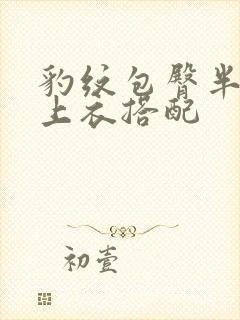 豹纹包臀半
上衣搭配
初壹